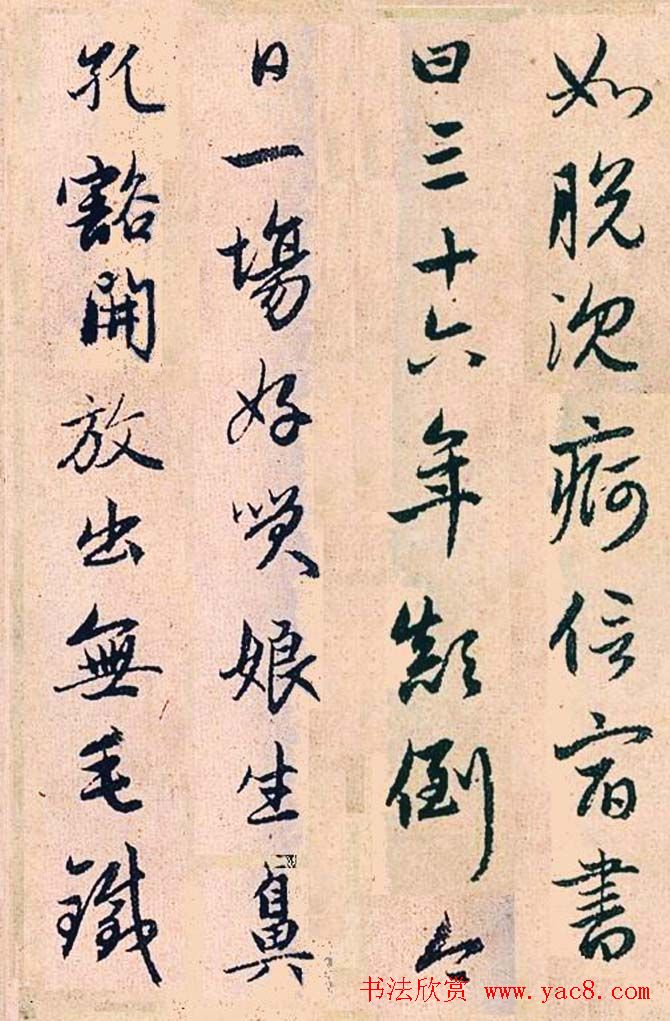 如脫沈痾信宿書
曰三十六年顛倒今
日一場好咲娘生鼻
孔豁開放出無毛鐵
书法欣赏 www.yac8.com